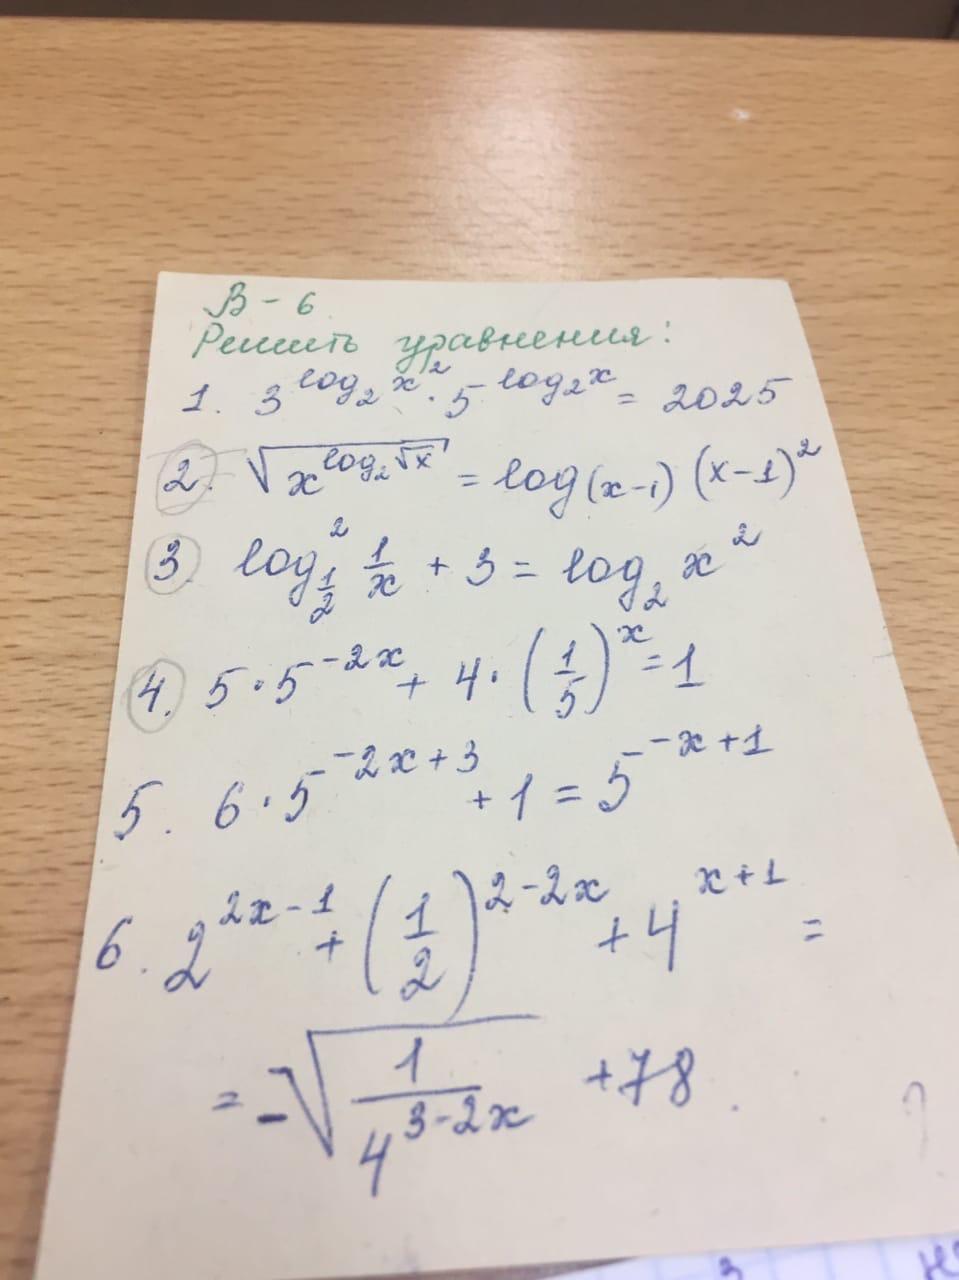 В - 6.
Решить уравнения:
1. 3^{log₂ x²} · 5^{log₂ x} = 2025
2. √(x^{log₂ √x}) = log_{(x-1)} (x-1)²
3. log²_{1/2} 1/x + 3 = log₂ x²
4. 5 · 5^{-2x} + 4 · (1/5)^x = 1
5. 6 · 5^{-2x+3} + 1 = 5^{-x+1}
6. 2^{2x-1} + (1/2)^{2-2x} + 4^{x+1} =
= -√(1/4^{3-2x}) + 78.